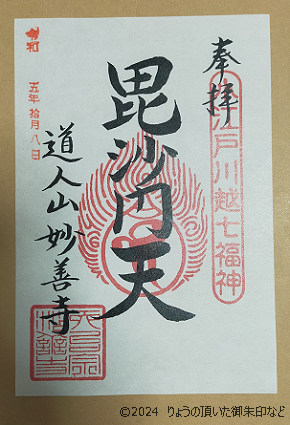 奉拝
小江戸川越七福神
毘沙門天
道人山妙善寺
令和
五年拾月八日
©2024 りょうの頂いた御朱印など